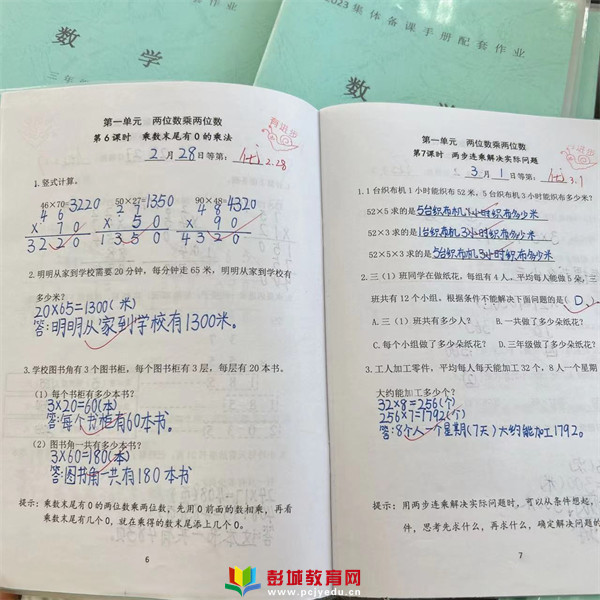 数 学
三年
2023集体备课手册配套作业
数 学
第一单元 两位数乘两位数
第6课时 乘数末尾有0的乘法
有进步
2月28日等第: 优 2.28
1.竖式计算。
46×70=3220 50×27=1350 90×48=4320
4 6 2 7 4 8
× 7 0 × 5 0 × 9 0
3 2 2 0 1 3 5 0 4 3 2 0
2.明明从家到学校需要20分钟,每分钟走65米,明明从家到学校有
多少米?
20×65=1300(米)
答:明明从家到学校有1300米。
3.学校图书角有3个图书柜,每个图书柜有3层,每层有20本书。
(1)每个书柜有多少本书?
3×20=60(本)
答:每个书柜有60本书。
(2)图书角一共有多少本书?
3×60=180(本)
答:图书角一共有180本书
提示:乘数末尾有0的两位数乘两位数,先用0前面的数相乘,再看
乘数末尾有几个0,就在乘得的数末尾添上几个0。
6
第一单元 两位数乘两位数
第7课时 两步连乘解决实际问题
3月1日等第: 优 3.1
1.1台织布机1小时能织布52米,5台织布机3小时能织布多少米?
52×5求的是5台织布机1小时织布多少米
52×3求的是1台织布机3小时织布多少米
52×5×3求的是5台织布机3小时织布多少米
2.三(1)班同学在做纸花,每组有4人,平均每人能做5朵,三
班共有12个小组,根据条件不能解决下面问题的是( D )
A.三(1)班共有多少人? B.一共做了多少朵纸花?
C.每个小组做了多少朵纸花? D.三年级做了多少朵纸花?
3.工人加工零件,平均每人每天能加工32个,8人一个星期
大约能加工多少个?
32×8=256(个)
256×7=1792(个)
答:8个人一个星期(7天)大约能加工1792。
提示:用两步连乘解决实际问题时,可以从条件想起,
件,思考先求什么,再求什么,确定解决问题的
7
彭城教育网
www.pcjyedu.cn